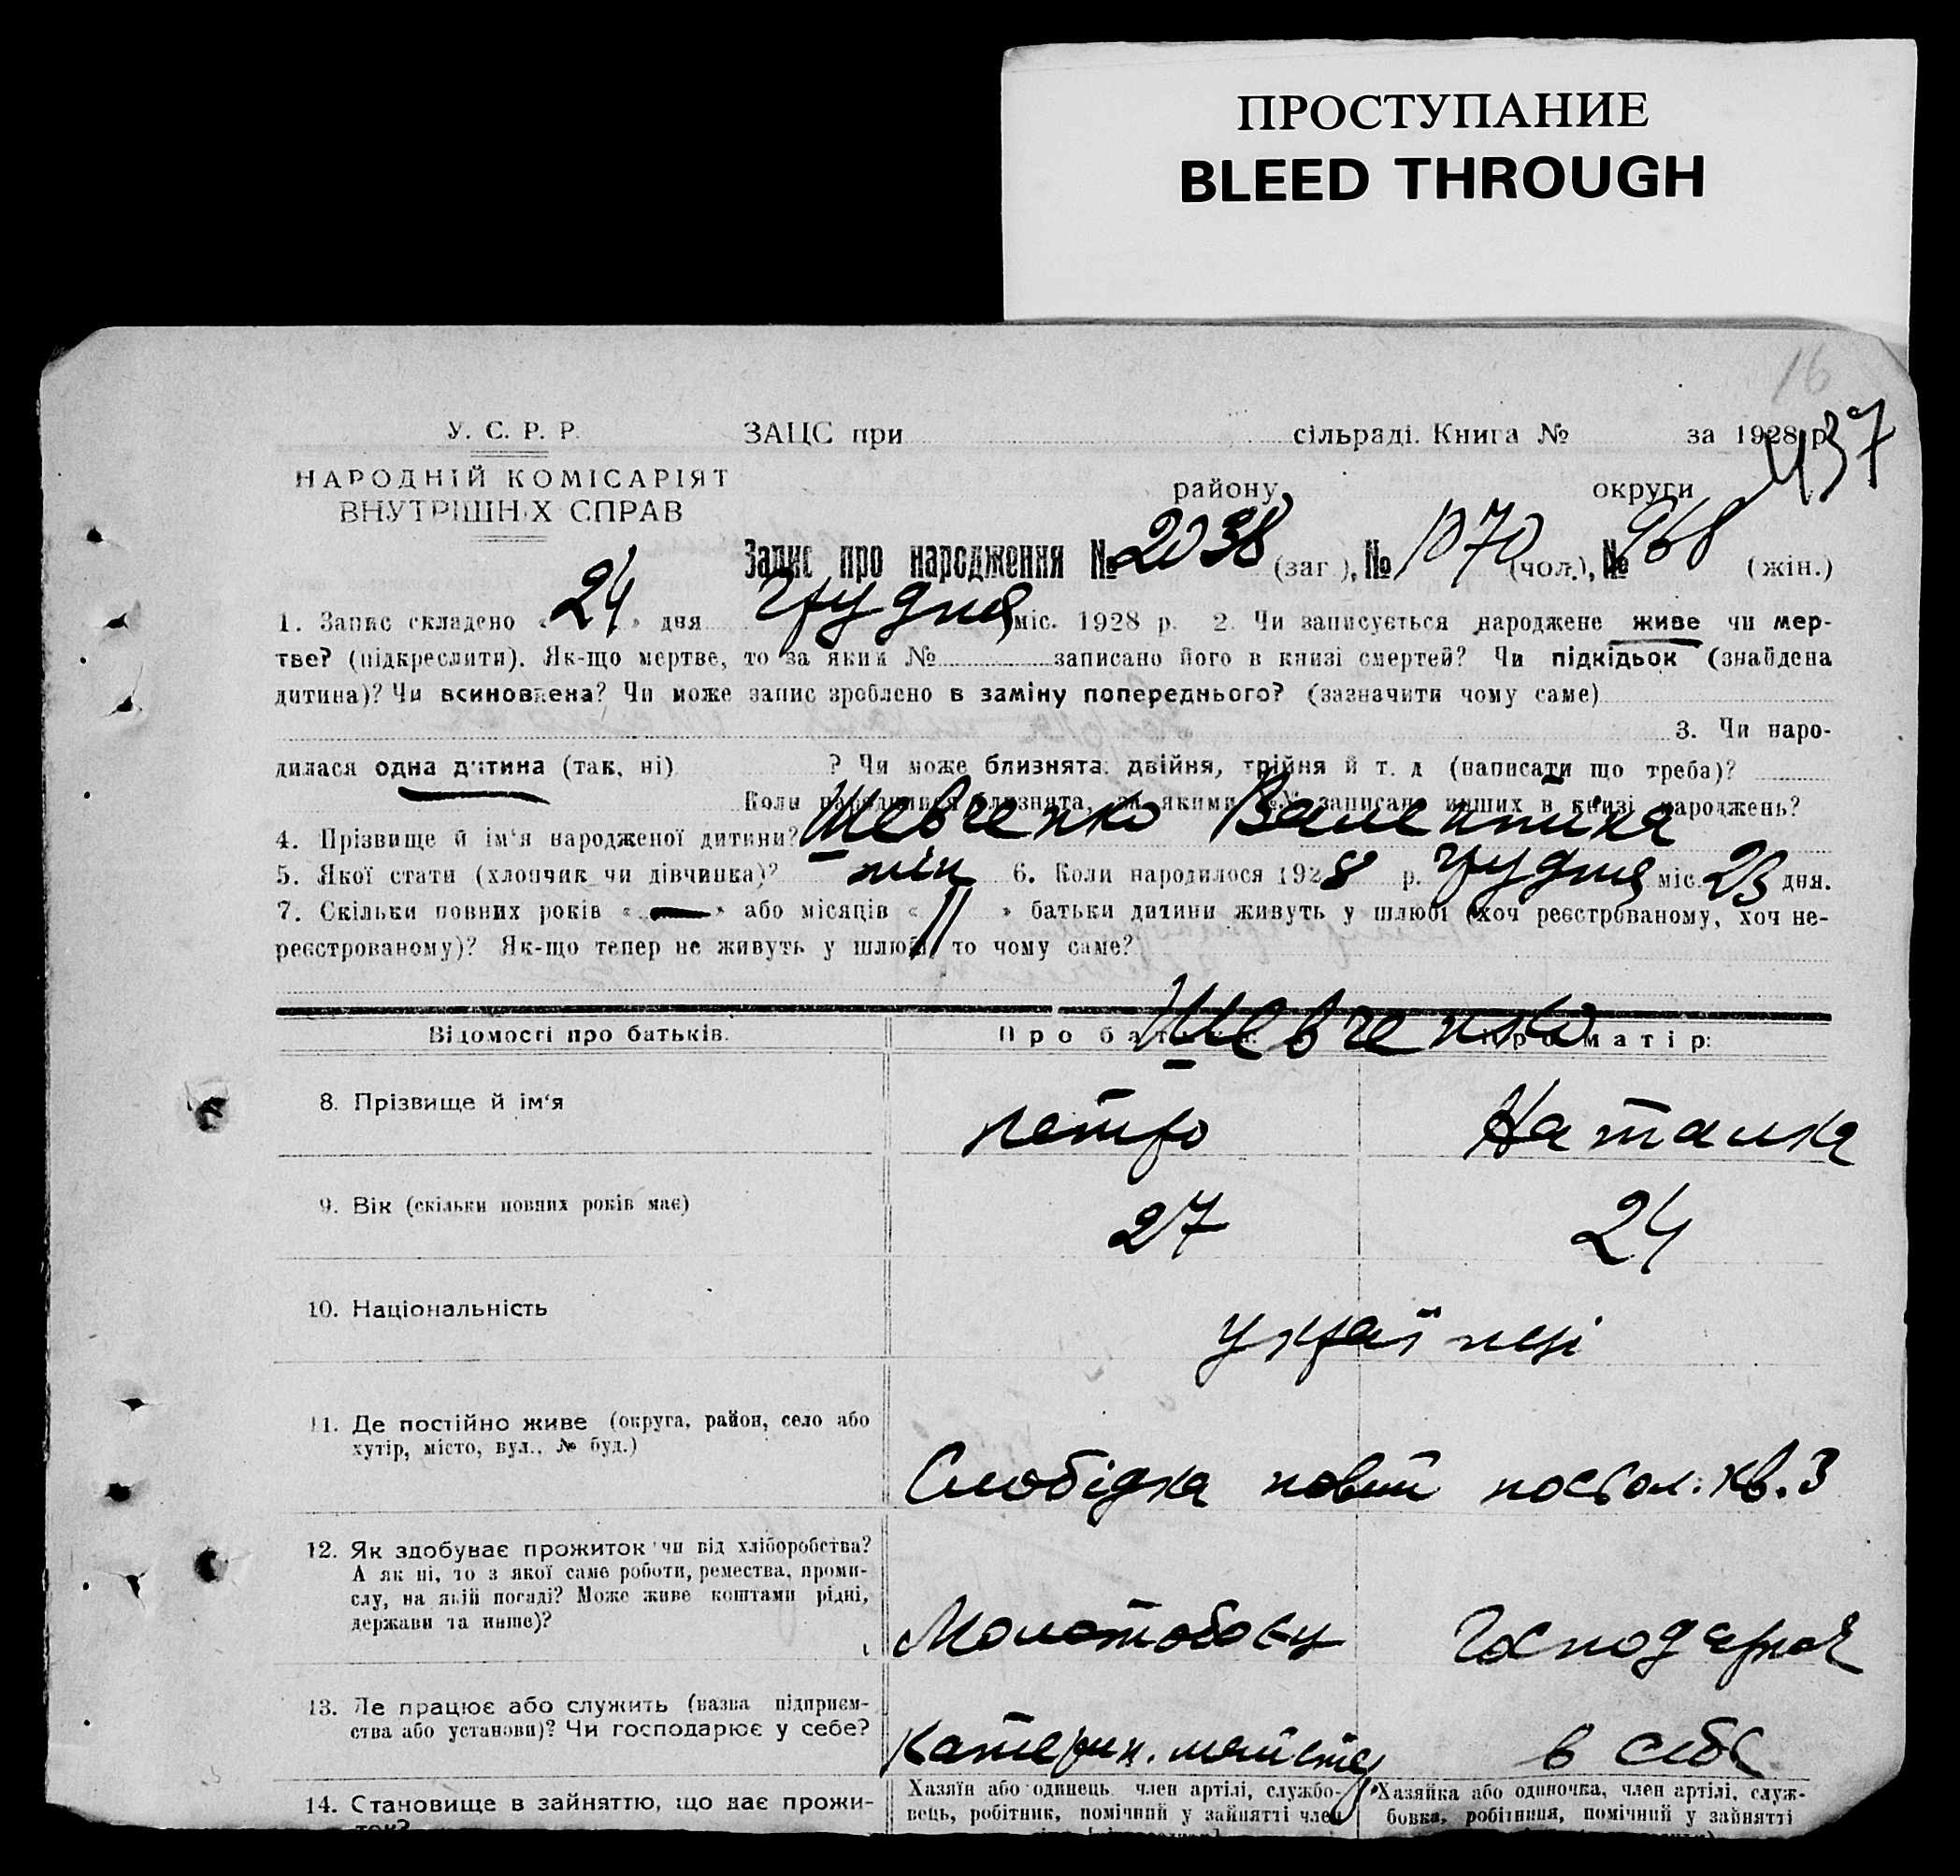 ПРОСТУПАНИЕ
BLEED THROUGH
16
437
У. С. Р. Р.
ЗАЦС при сільраді. Книга № за 1928 р.
НАРОДНІЙ КОМІСАРІЯТ
ВНУТРІШНІХ СПРАВ
району округи
Запис про народження № 2038 (заг.), № 1070 (чол.), № 968 (жін.)
1. Запис складено « 24 » дня грудня міс. 1928 р. 2. Чи записується народжене живе чи мер-
тве? (підкреслити). Як-що мертве, то за яким № записано його в книзі смертей? Чи підкідьок (знайдена
дитина)? Чи всиновлена? Чи може запис зроблено в заміну попереднього? (зазначити чому саме)
3. Чи наро-
дилася одна дитина (так, ні) ? Чи може близнята: двійня, трійня й т. д (написати що треба)?
Коли народилися близнята, за якими №№ записано инших в книзі народжень?
4. Прізвище й ім'я народженої дитини? Шевченко Валентина
5. Якої стати (хлопчик чи дівчинка)? жін 6. Коли народилося 1928 р. грудня міс. 23 дня.
7. Скільки повних років « — » або місяців « 11 » батьки дитини живуть у шлюбі (хоч реєстрованому, хоч не-
реєстрованому)? Як-що тепер не живуть у шлюбі, то чому саме?
Шевченко
Відомості про батьків. Про батька: Про матір:
8. Прізвище й ім'я Петро Наталка
9. Вік (скільки повних років має) 27 24
10. Національність українці
11. Де постійно живе (округа, район, село або
хутір, місто, вул., № буд.)
Слобідка новий посьол. кв. 3
12. Як здобуває прожиток чи від хліборобства?
А як ні, то з якої саме роботи, ремества, проми-
слу, на якій посаді? Може живе коштами рідні,
держави та инше)?
Молотобоєц Господарює
13. Де працює або служить (назва підприєм-
ства або установи)? Чи господарює у себе?
Катерин. майстер в себе
14. Становище в зайняттю, що дає прожи-
ток?
Хазяїн або одинець член артілі, службо-
вець, робітник, помічний у зайнятті член
Хазяйка або одиночка, член артілі, служ-
бовка, робітниця, помічний у зайнятті